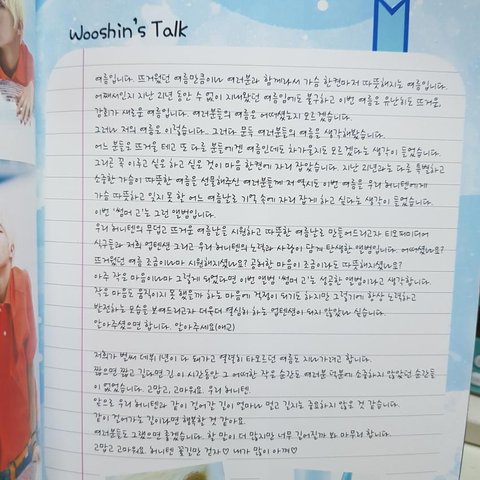 Wooshin's Talk
여름입니다. 뜨거웠던 여름만큼이나 여러분과 함께라서 가슴 한켠마저 따뜻해지는 여름입니다.
어째서인지 지난 21년 동안 수 없이 지내왔던 여름임에도 불구하고 이번 여름은 유난히도 뜨거운,
감회가 새로운 여름입니다. 여러분들의 여름은 어떠셨는지 모르겠습니다.
그러나 저의 여름은 이렇습니다. 그러다 문득 여러분들의 여름을 생각해봤습니다.
어느 분들은 뜨거울 테고 또 다른 분들에겐 여름인데도 차가울지도 모르겠다는 생각이 들었습니다.
그리곤 꼭 이루고 싶은 하고 싶은 것이 마음 한켠에 자리 잡았습니다. 지난 21년과는 다른 특별하고
소중한 가슴이 따뜻한 여름을 선물해주신 여러분들께 저 역시도 이번 여름은 우리 허니텐에게
가슴 따뜻하고 잊지 못 할 어느 여름날로 기억 속에 자리 잡게 하고 싶다는 생각이 들었습니다.
이번 '썸머 고'는 그런 앨범입니다.
우리 허니텐의 무덥고 뜨거운 여름날을 시원하고 따뜻한 여름날로 만들어드리고자 티오피미디어
식구들과 저희 업텐션 그리고 우리 허니텐의 노력과 사랑이 담겨 탄생한 앨범입니다. 어떠셨나요?
뜨거웠던 여름 조금이나마 시원해지셨나요? 공허한 마음이 조금이라도 따뜻해지셨나요?
아주 작은 마음이나마 그렇게 되었다면 이번 앨범 '썸머 고'는 성공한 앨범이라고 생각합니다.
작은 마음도 움직이지 못 했을까 하는 마음에 걱정이 되기도 하지만 그렇기에 항상 노력하고
발전하는 모습을 보여드리고자 더욱더 열심히 하는 업텐션이 되지 않았나 싶습니다.
알아주셨으면 합니다. 알아주세요(애교)
저희가 벌써 데뷔 1년이 다 돼가고 열렬히 타오르던 여름도 지나가려고 합니다.
짧으면 짧고 길다면 긴 이 시간동안 그 어떠한 작은 순간도 여러분 덕분에 소중하지 않았던 순간들
이 없었습니다. 고맙고, 고마워요. 우리 허니텐.
앞으로 우리 허니텐과 같이 걸어갈 길이 얼마나 멀고 길지는 중요하지 않은 것 같습니다.
같이 걸어가는 길이라면 행복할 것 같아요.
여러분들도 그랬으면 좋겠습니다. 할 말이 더 많지만 너무 길어질까 봐 마무리 합니다.
고맙고 고마워요. 허니텐 꽃길만 걷자♡ 내가 많이 아껴♡